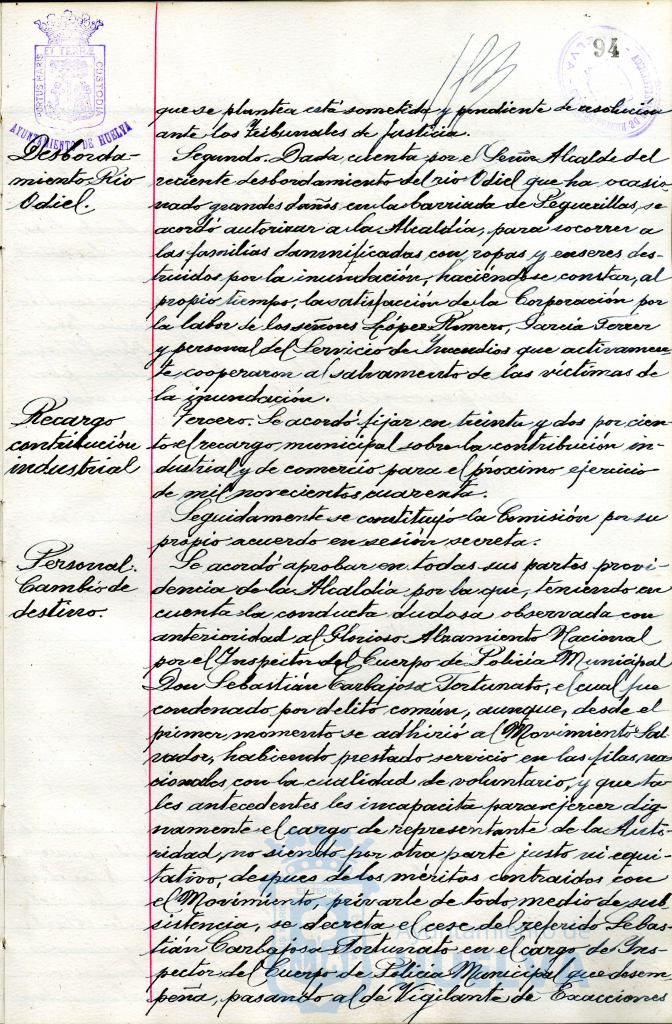 94
PORTUS MARIS ET TERRÆ CUSTODIA
AYUNTAMIENTO DE HUELVA
que se plantea está sometida y pendiente de resolución
ante los Tribunales de Justicia.
Desborda-
miento Río
Odiel.
Segundo. Dada cuenta por el Señor Alcalde del
reciente desbordamiento del rio Odiel que ha ocasio
nado grandes daños en la barriada de Peguerillas, se
acordó autorizar a la Alcaldía, para socorrer a
las familias damnificadas con ropas y enseres des-
truidos por la inundación, haciéndose constar, al
propio tiempo, la satisfacción de la Corporación por
la labor de los señores López Romero, García Ferrer
y personal del Servicio de Incendios que activamen
te cooperaron al salvamento de las victimas de
la inundación.
Recargo
contribución
industrial
Tercero. Se acordó fijar en treinta y dos por cien
to el recargo municipal sobre la contribución in-
dustrial y de comercio para el próximo ejercicio
de mil novecientos cuarenta.
Seguidamente se constituyó la Comisión por su
propio acuerdo en sesión secreta.
Personal.
Cambio de
destino.
Se acordó aprobar en todas sus partes provi-
dencia de la Alcaldía por la que, teniendo en
cuenta la conducta dudosa observada con
anterioridad al Glorioso Alzamiento Nacional
por el Inspector del Cuerpo de Policía Municipal
Don Sebastián Carbajosa Fortunato, el cual fue
condenado por delito común, aunque, desde el
primer momento se adhirió al Movimiento Sal-
vador, habiendo prestado servicio en las filas na
cionales con la cualidad de voluntario, y que ta-
les antecedentes les incapacita para ejercer dig-
namente el cargo de representante de la Auto
ridad, no siendo por otra parte justo ni equi-
tativo, despues de los méritos contraidos con
el Movimiento, privarle de todo medio de sub
sistencia, se decreta el cese del referido Sebas-
tián Carbajosa Fortunato en el cargo de Ins-
pector del Cuerpo de Policía Municipal que desem
peña, pasando al de Vigilante de Exacciones
Ayuntamiento de
HUELVA